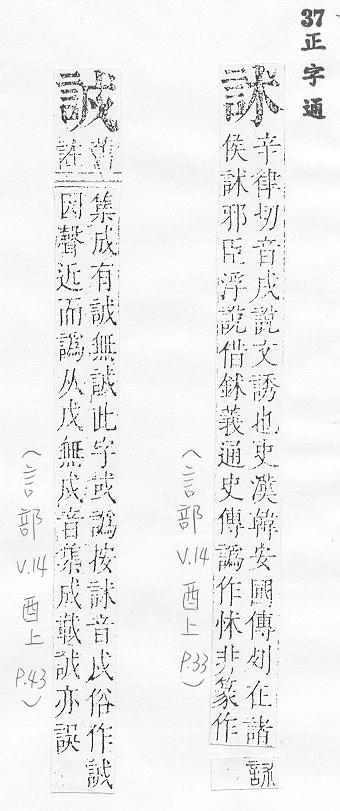 37正字通
訹
辛律切音戌說文誘也史漢韓安國傳列在諸
侯訹邪臣浮說借鉥義通史傳譌作怵非篆作
䛆
(言部 V.14 酉上 P.33)
誠
舊註
集成有誠無誠此字或譌按訹音戌俗作誠
因聲近而譌从戊無成音集成載誠亦誤
(言部 V.14 酉上 P.43)